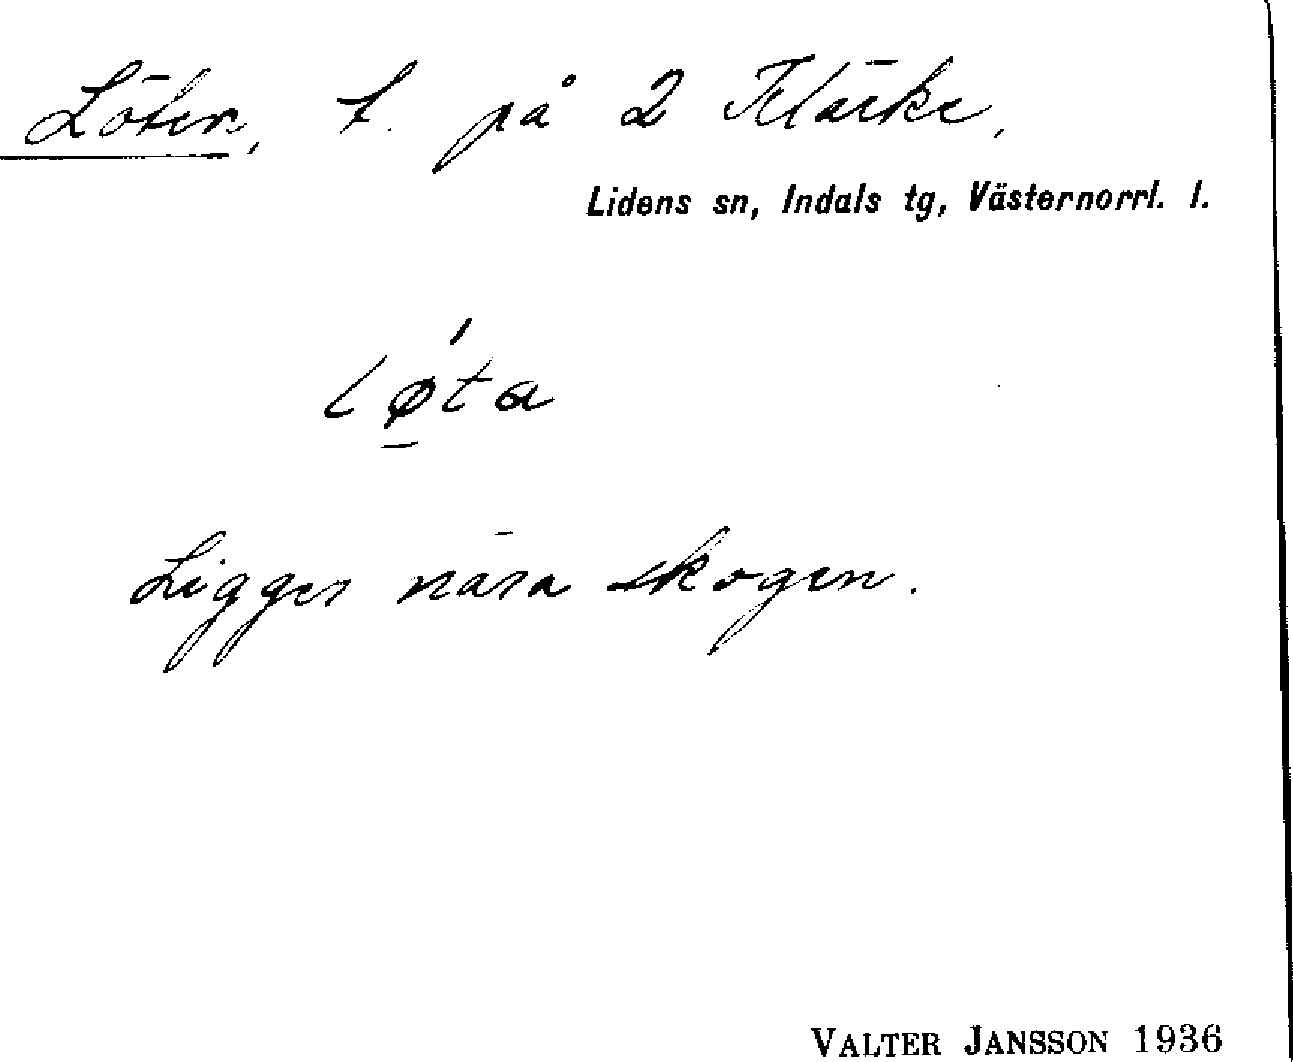 Löten, t. på 2 Fläcke,
Lidens sn, Indals tg, Västernorrl. l.
lǿ̲ta
Ligger nära skogen.
VALTER JANSSON 1936